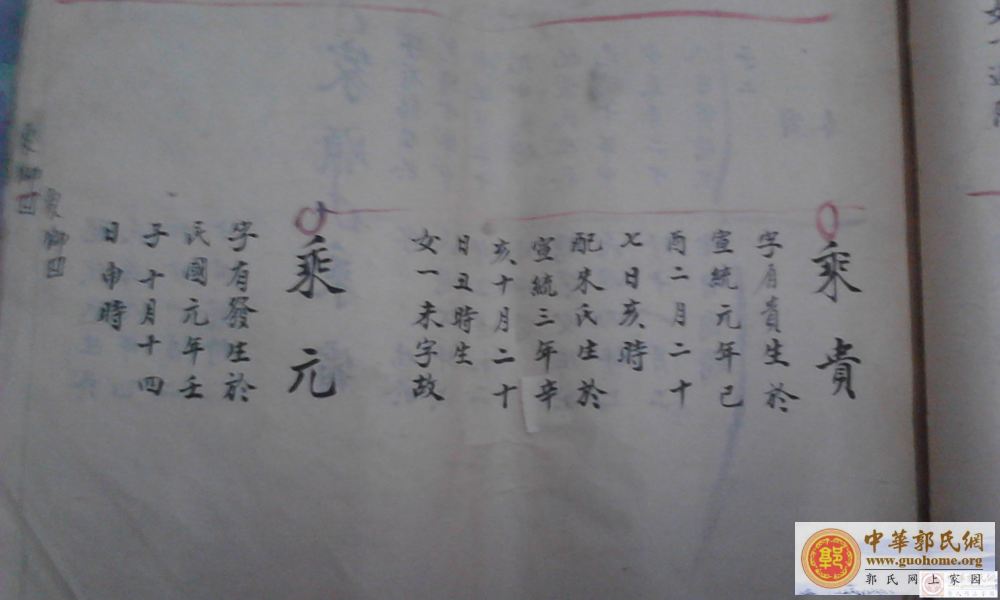 乘貴
字有貴生於
宣統元年己
酉二月二十
七日亥時
配朱氏生於
宣統三年辛
亥十月二十
日丑時生
女一未字故
乘元
字有發生於
民國元年壬
子十月十四
日申時
中華郭氏網
www.guohome.org
郭氏网上家园